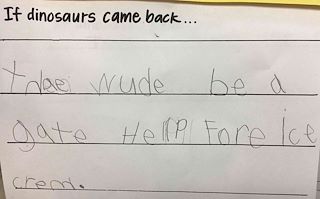 If dinosaurs came back...
thae wude be a
gate Hellp Fore Ice
crem.